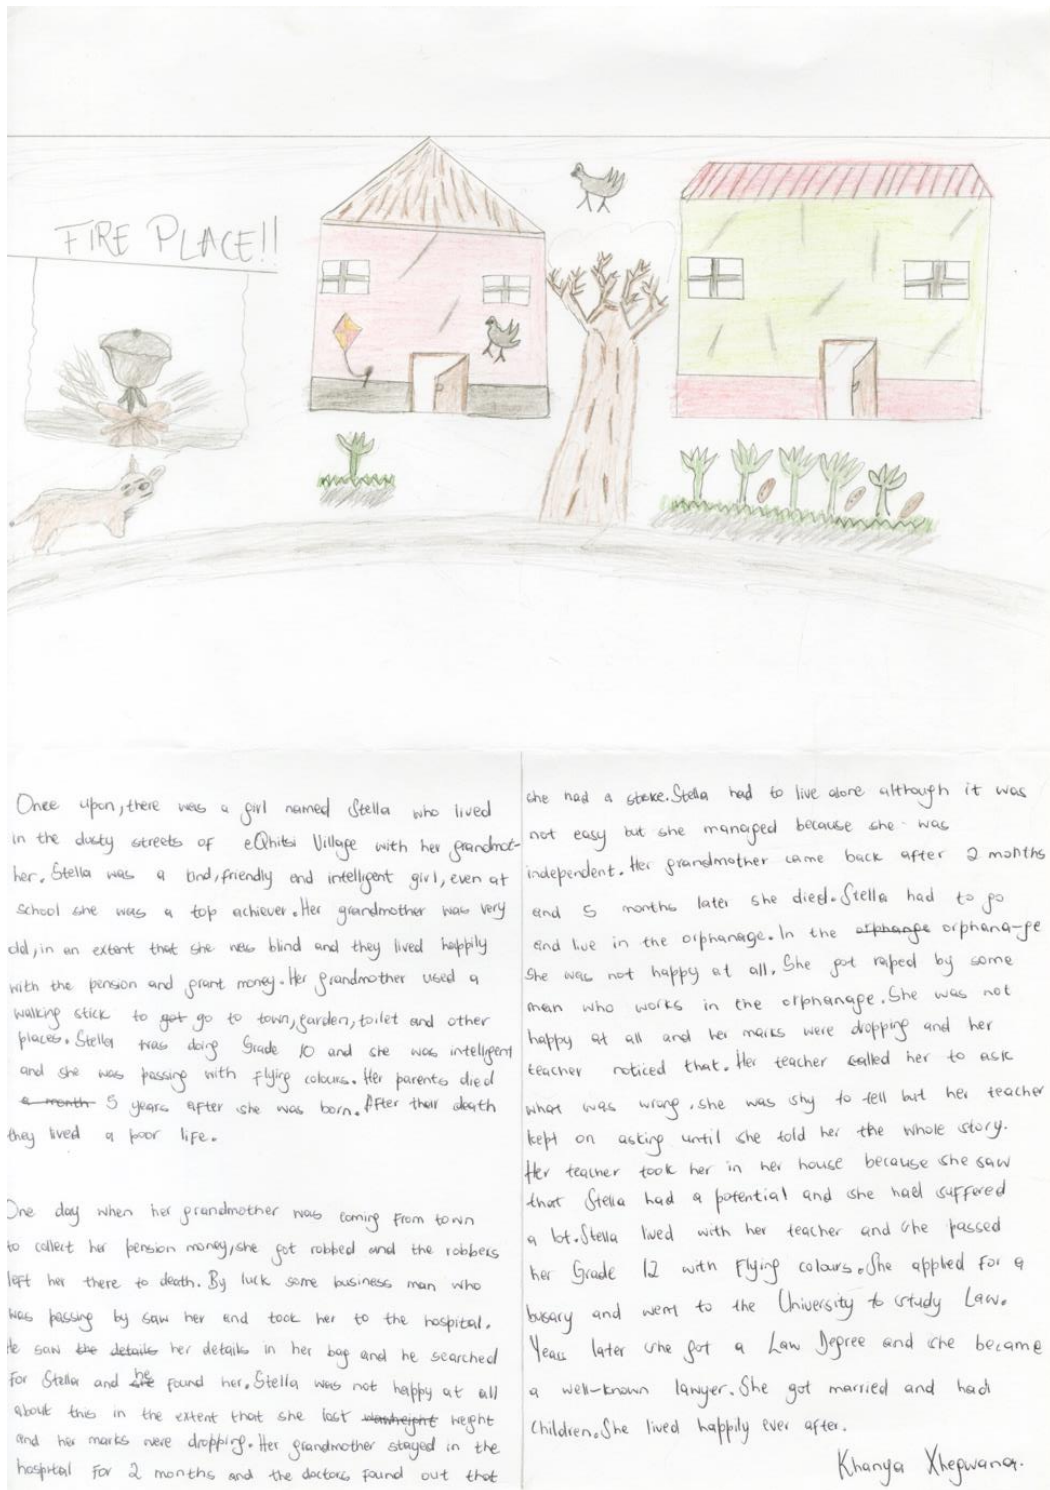 FIRE PLACE!!
Once upon, there was a girl named Stella who lived
in the dusty streets of eQhitsi Village with her grandmot-
her. Stella was a kind, friendly and intelligent girl, even at
school she was a top achiever. Her grandmother was very
old, in an extent that she was blind and they lived happily
with the pension and grant money. Her grandmother used a
walking stick to got go to town, garden, toilet and other
places. Stella was doing Grade 10 and she was intelligent
and she was passing with flying colours. Her parents died
a month 5 years after she was born. After their death
they lived a poor life.
One day when her grandmother was coming from town
to collect her pension money, she got robbed and the robbers
left her there to death. By luck some business man who
was passing by saw her and took her to the hospital.
He saw the details her details in her bag and he searched
for Stella and she he found her. Stella was not happy at all
about this in the extent that she lost weight
and her marks were dropping. Her grandmother stayed in the
hospital for 2 months and the doctors found out that
she had a stroke. Stella had to live alone although it was
not easy but she managed because she was
independent. Her grandmother came back after 2 months
and 5 months later she died. Stella had to go
and live in the orphanage. In the orphange orphana-ge
She was not happy at all. She got raped by some
man who works in the orphanage. She was not
happy at all and her marks were dropping and her
teacher noticed that. Her teacher called her to ask
what was wrong, she was shy to tell but her teacher
kept on asking until she told her the whole story.
Her teacher took her in her house because she saw
that Stella had a potential and she had suffered
a lot. Stella lived with her teacher and she passed
her Grade 12 with flying colours. She applied for a
busary and went to the University to study Law.
Years later she got a Law Degree and she became
a well-known lawyer. She got married and had
children. She lived happily ever after.
Khanya Xhegwana.